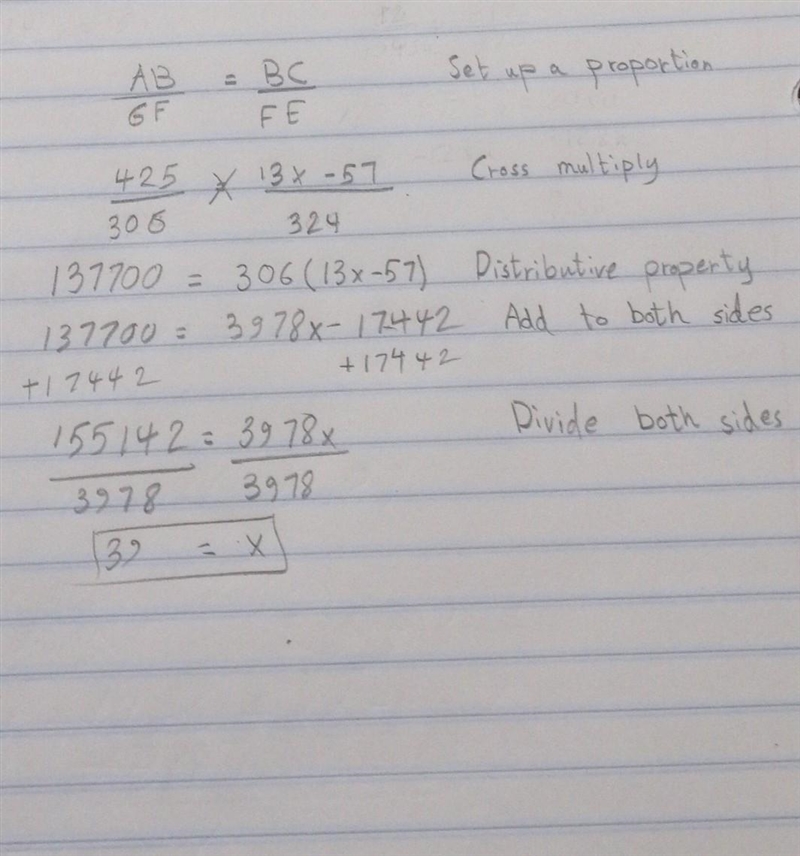 AB = BC Set up a proportion
GF FE
425 13x-57 Cross multiply
306 324
137700 = 306(13x-57) Distributive property
137700 = 3978x - 17442 Add to both sides
+17442 +17442
155142 = 3978x Divide both sides
3978 3978
39 = x